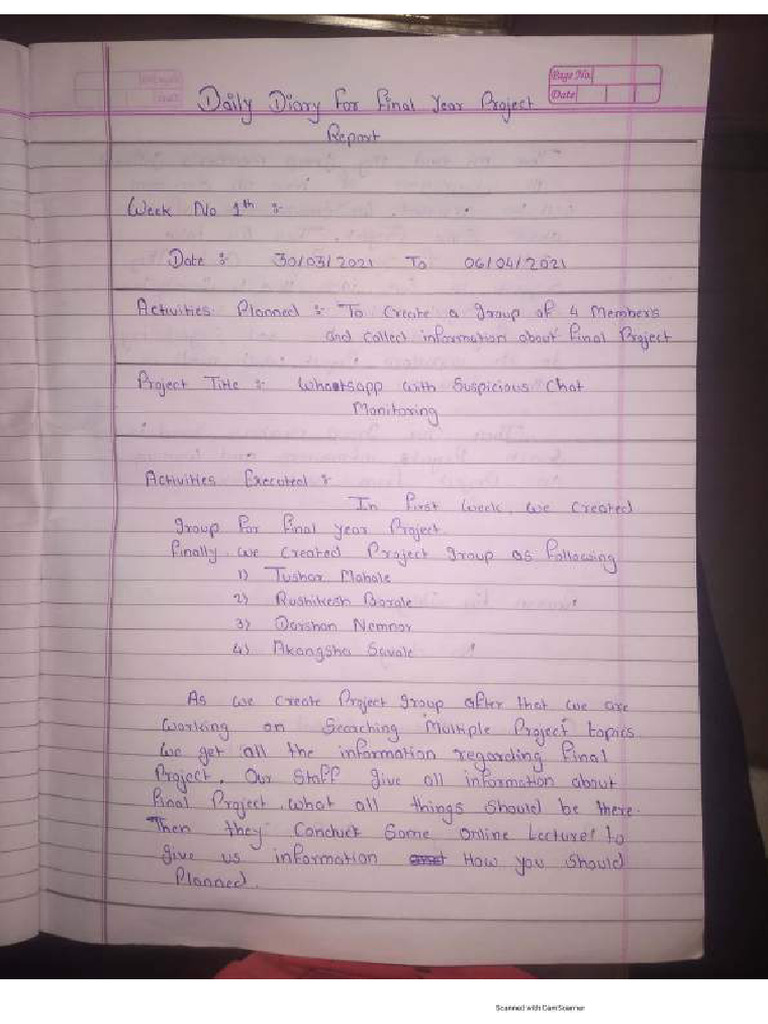 Page No.
Date
Daily Diary For Final Year Project
Report
Week No 1th :-
Date :- 30/03/2021 To 06/04/2021
Activities Planned :- To Create a group of 4 Members
and collect information about Final Project
Project Title :- Whatsapp with Suspicious Chat
Monitoring
Activities Executed :-
In First Week, we created
group For Final year Project.
Finally we created Project group as Following
1) Tushar Mahale
2) Rushikesh Borale
3) Darshan Nemnar
4) Akangsha Savale
As we create Project group after that we are
working on Searching Multiple Project topics
We get all the information regarding Final
Project. Our Staff give all information about
Final Project what all things should be there.
Then they Conduct Some Online Lectures to
give us information How you Should
Planned.
Scanned with CamScanner